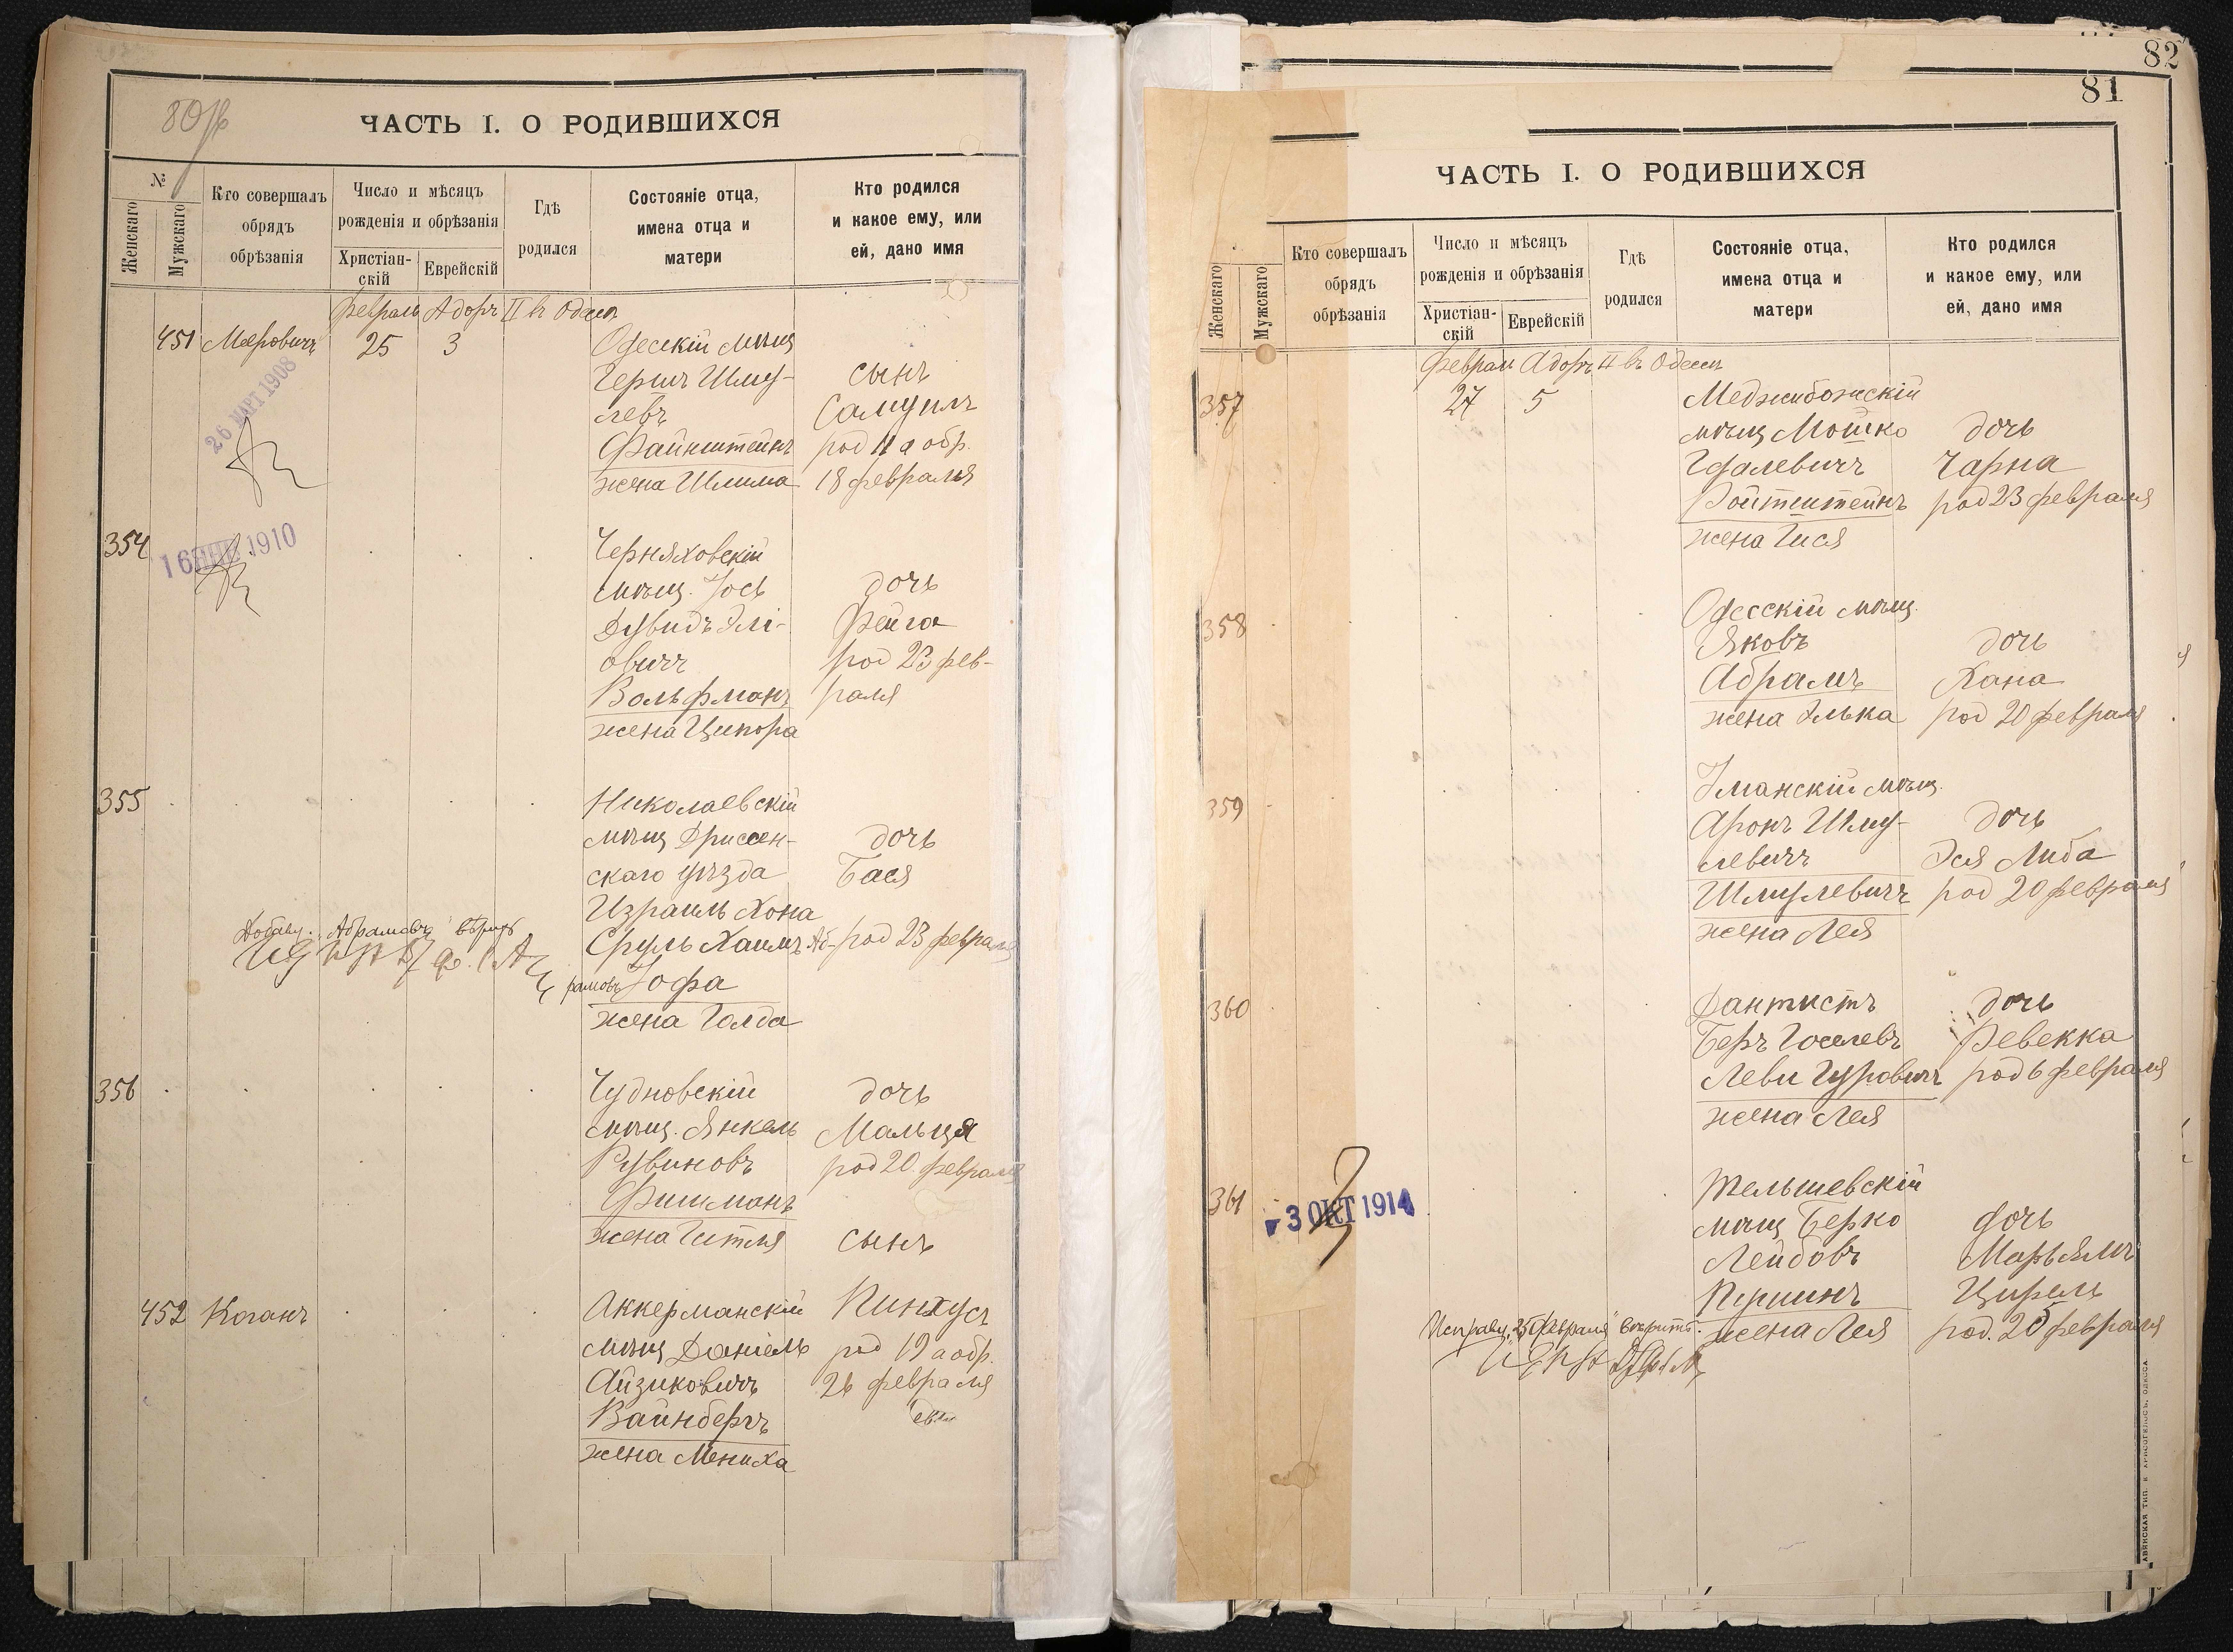 80
ЧАСТЬ I. О РОДИВШИХСЯ
№
Женскаго
Мужскаго
Кто совершалъ
обрядъ
обрѣзанія
Число и мѣсяцъ
рожденія и обрѣзанія
Христіан-
скій
Еврейскій
Гдѣ
родился
Состояніе отца,
имена отца и
матери
Кто родился
и какое ему, или
ей, дано имя
Февраль Адоръ II въ Одессѣ
451 Меровичъ 25 3 Одесскій мѣщ
26 МАРТ 1908
Гершъ Шму- сынъ
левъ Самуилъ
Файнштейнъ род 11 а обр.
жена Шлима 18 февраля
354 Черняховскій
16 ЯНВ 1910
мѣщ. Іось дочь
Дувидъ Элі- Фейга
овичъ род 23 фев-
Вольфманъ раля
жена Ципора
355 Николаевскій
мѣщ Дриссен- дочь
скаго уѣзда Бася
Израиль Хона
Сруль Хаимъ Аб- род 23 февраля
рамовъ Іофа
жена Голда
Добавл. Абрамовъ вѣрно
356 Чудновскій дочь
мѣщ. Янкель Мальця
Рувиновъ род 20 февраля
Фишманъ
жена Гитля сынъ
452 Коганъ Аккерманскій Пинхусъ
мѣщ Даніель род 19 а обр.
Айзиковичъ 26 февраля
Вайнбергъ
жена Мениха
82
81
ЧАСТЬ I. О РОДИВШИХСЯ
Женскаго
Мужскаго
Кто совершалъ
обрядъ
обрѣзанія
Число и мѣсяцъ
рожденія и обрѣзанія
Христіан-
скій
Еврейскій
Гдѣ
родился
Состояніе отца,
имена отца и
матери
Кто родился
и какое ему, или
ей, дано имя
Февраль Адоръ II въ Одессѣ
357 27 5 Меджибожскій
мѣщ Мошко дочь
Гдалевичъ Чарна
Ройтштейнъ род 23 февраля
жена Гися
358 Одесскій мѣщ.
Яковъ дочь
Абрамъ Хана
жена Элька род 20 февраля
359 Уманскій мѣщ.
Аронъ Шму- дочь
левичъ Эся Либа
Шмулевичъ род 20 февраля
жена Лея
360 Дантистъ дочь
Беръ Іоселевъ Ревекка
Леви Гуровичъ род 6 февраля
жена Лея
361 Тельшевскій
3 ОКТ 1914
мѣщ Берко дочь
Лейбовъ Марьямъ
Пушинъ Цирель
жена Лея род. 25 февраля
Исправл. "25 Февраля"